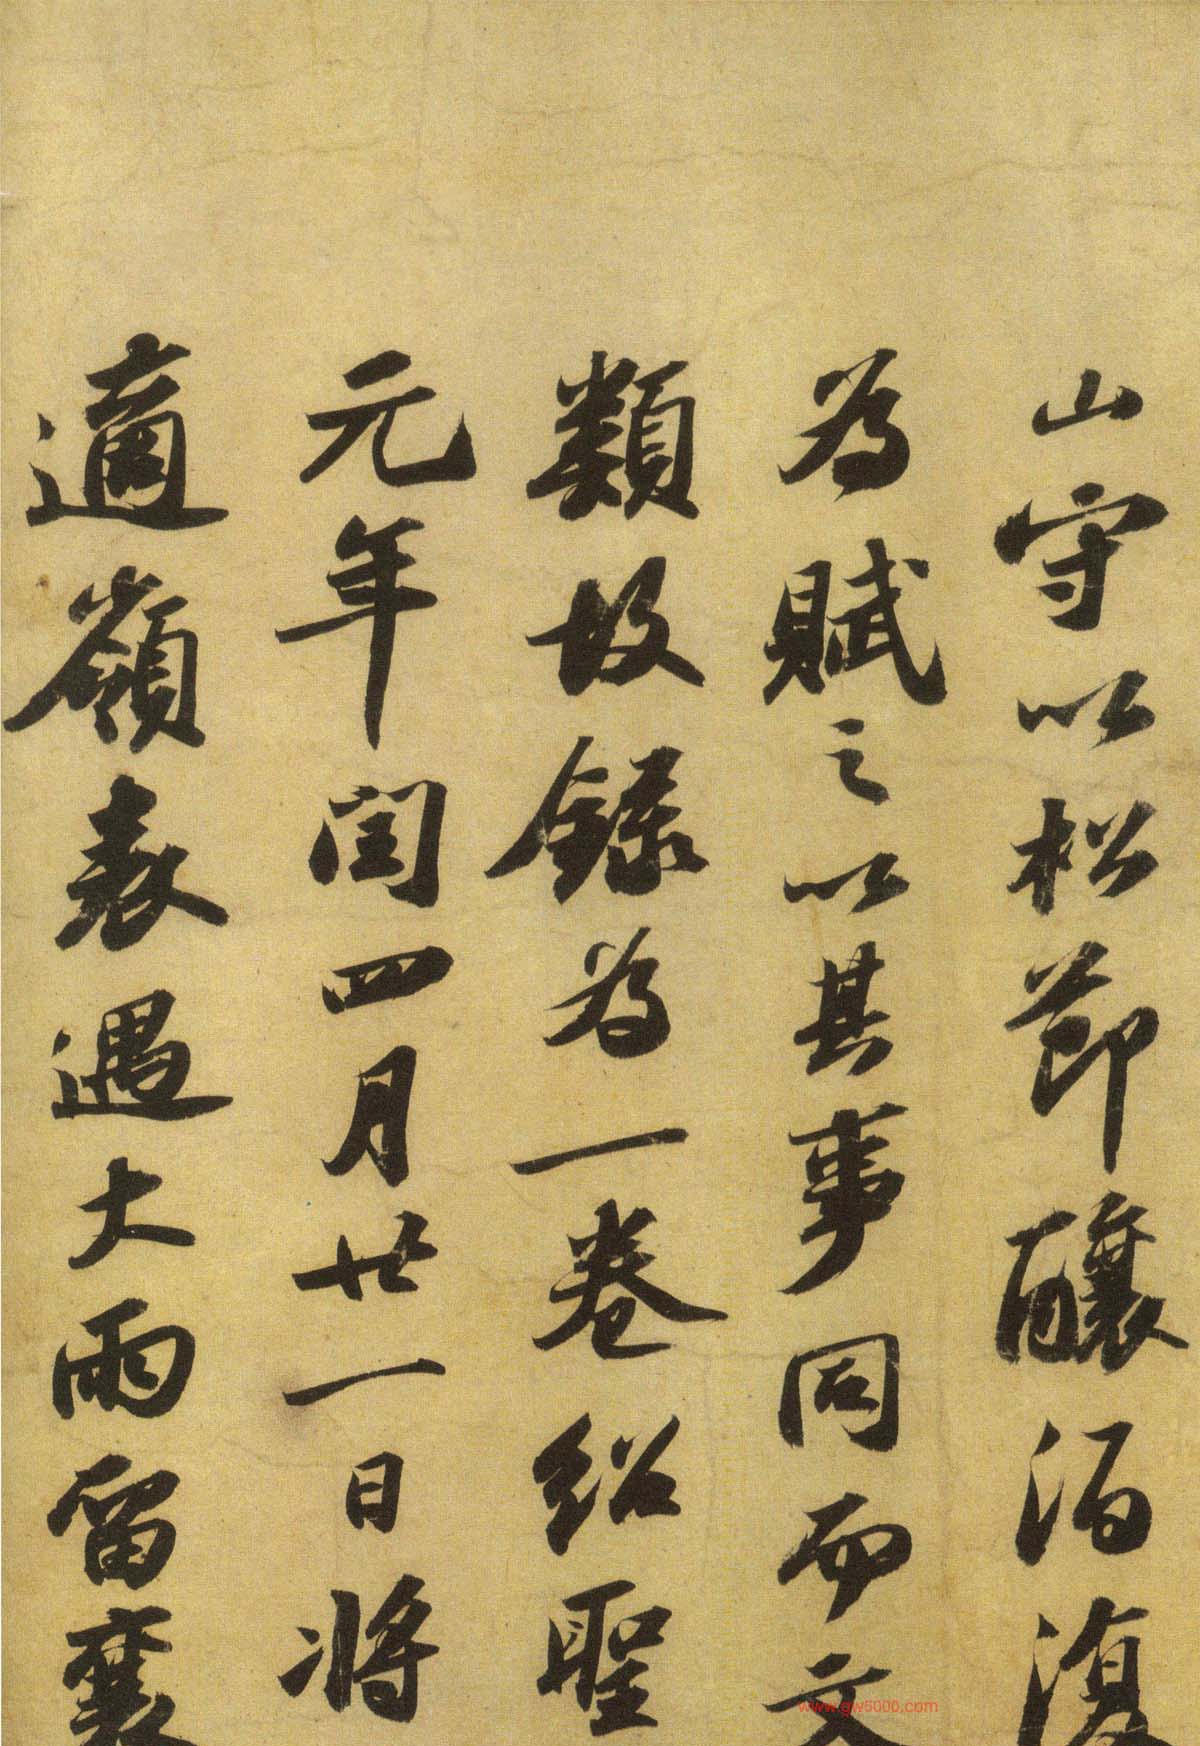 山守以松節釀酒復
為賦之以其事同而文
類故録為一卷紹聖
元年閏四月廿一日將
適嶺表遇大雨留襄
www.gw5000.com